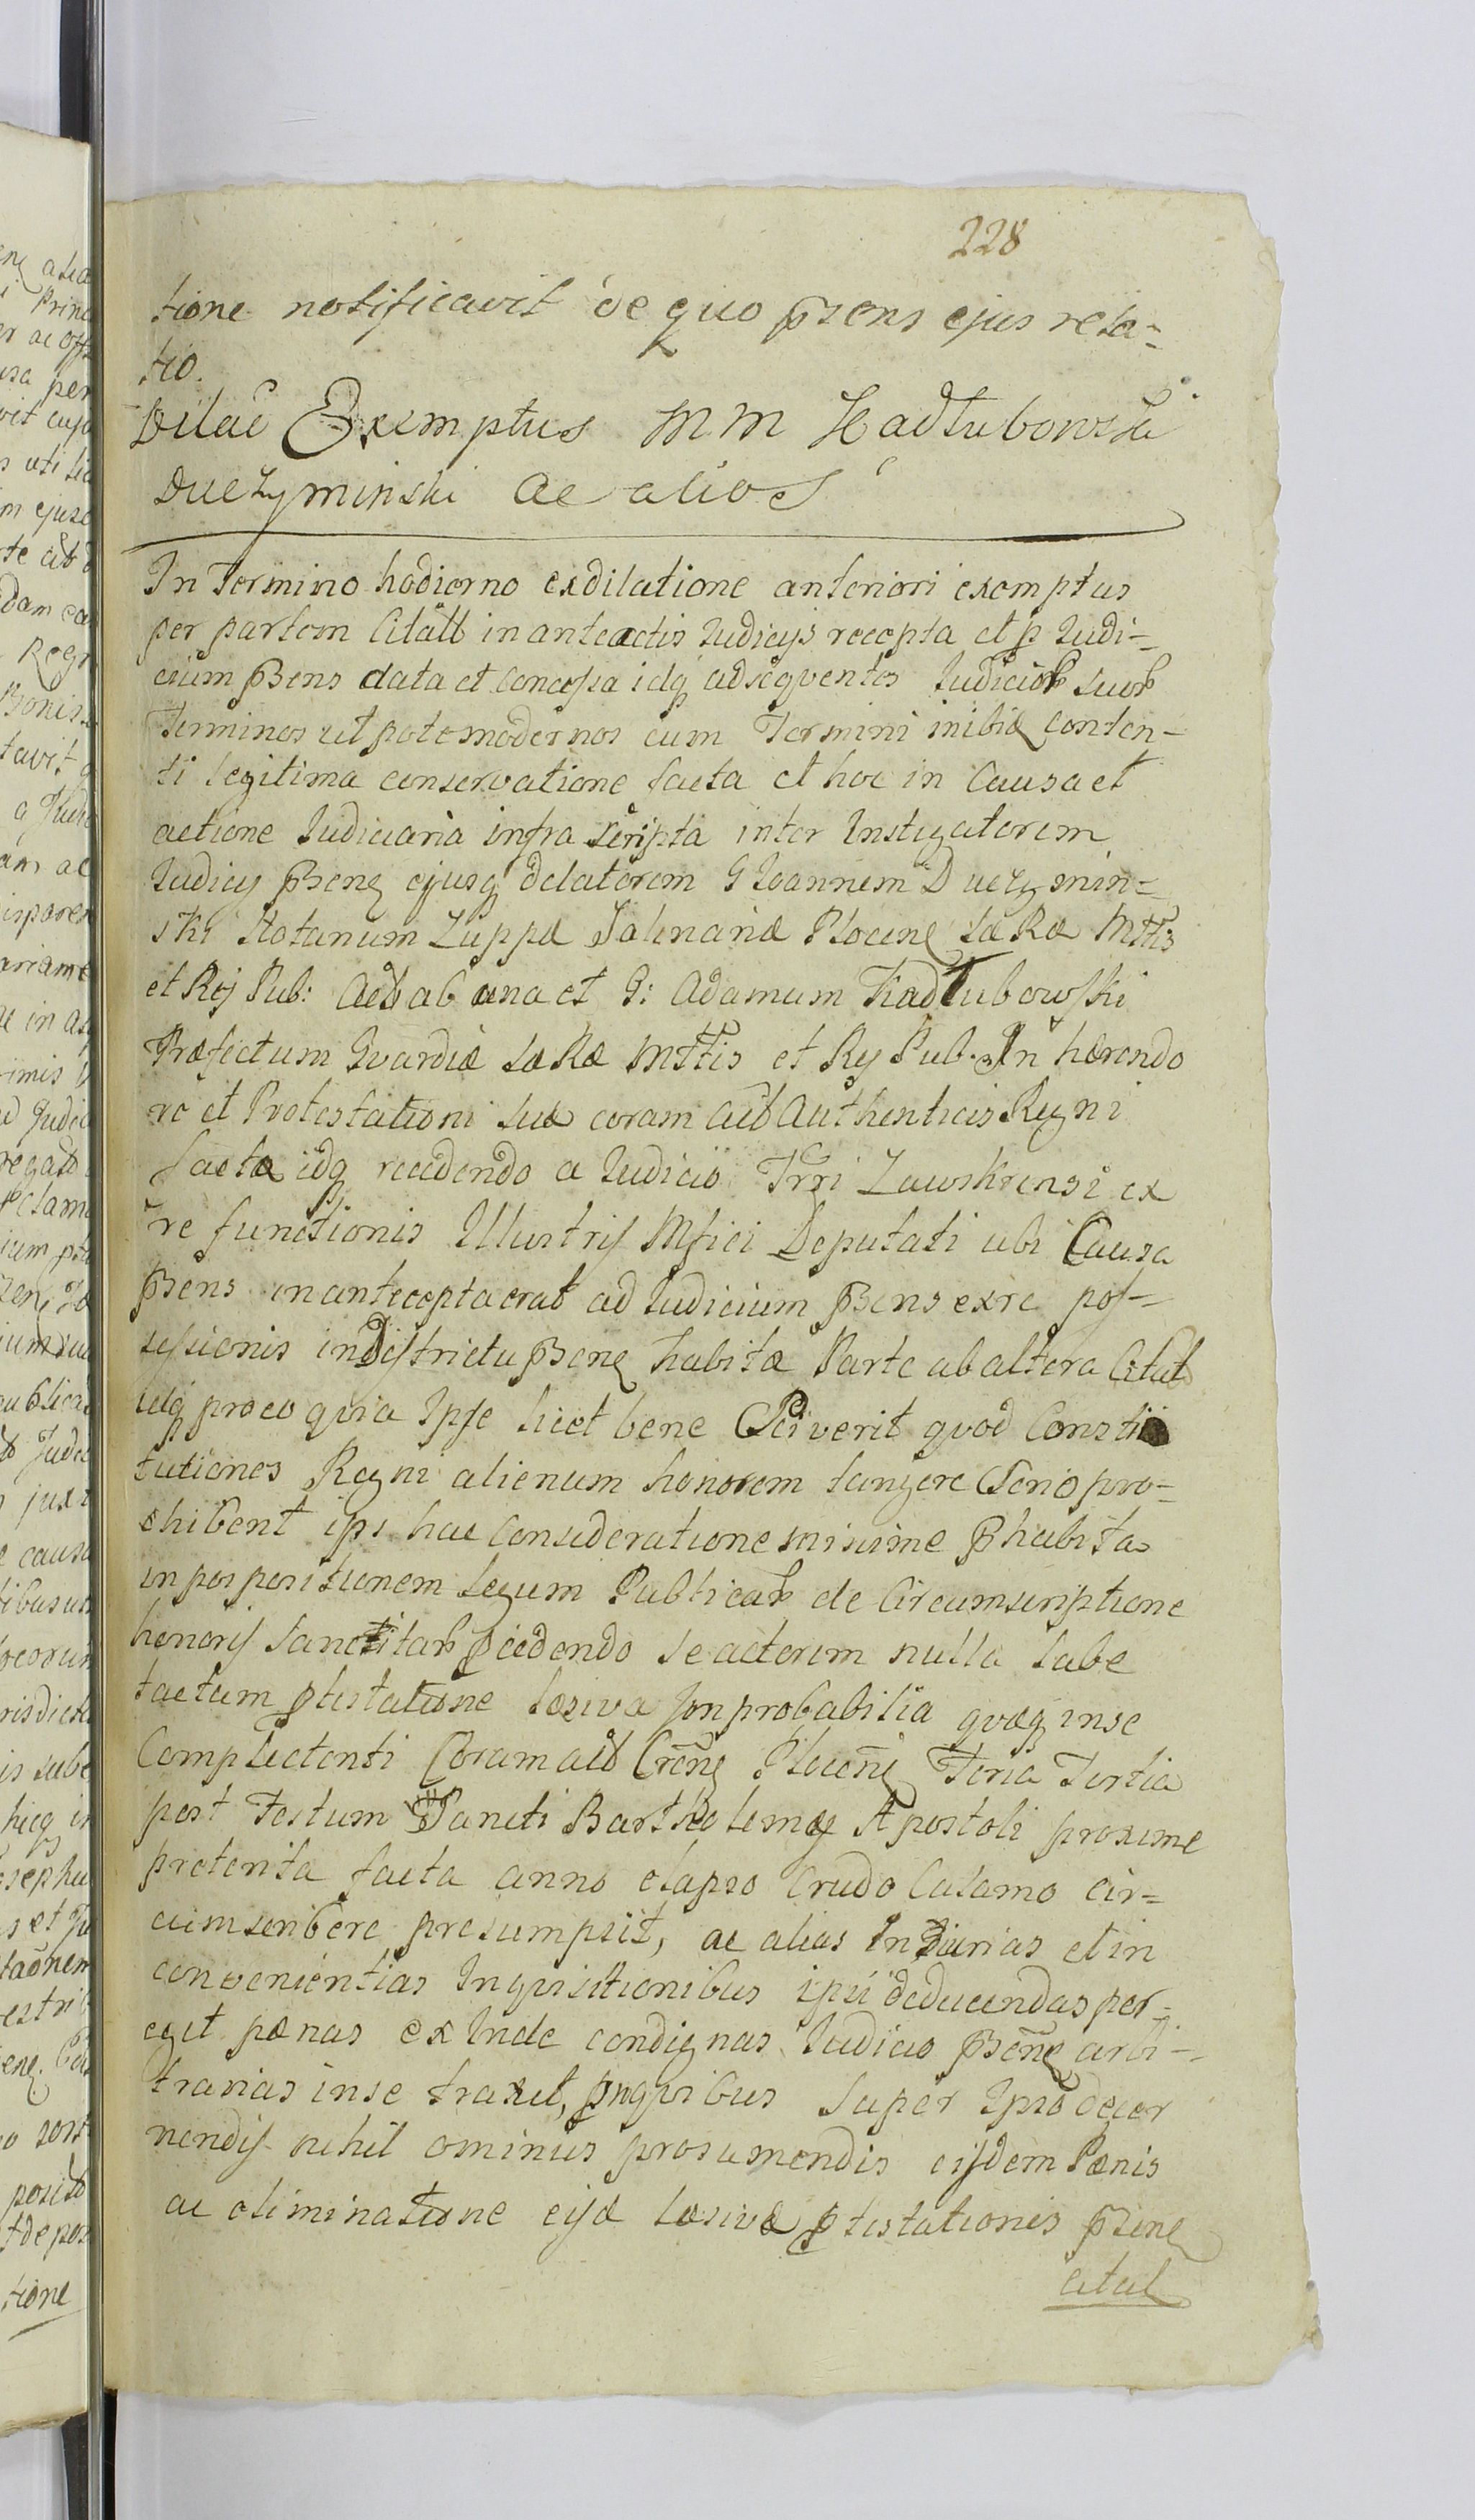 228
tione notificavit de quo pzens ejus rela=
tio.
Dilaē Exemptus M M Kadłubowski
Duczyminski ac alios
In Termino hodierno exdilatione anteriori exemptus
per partem Citatt in anteactis Judicijs recepta et p Judi=
cium pzens data et Concessa idq adseqventes Judicior suor
Terminos utpote modernos cum Termini inibiq conten=
ti legitima conservatione facta et hoc in Causa et
actione Judiciaria infra scripta inter Instigatorem
Judicij pzens ejusq delatorem G Joannem Duczymin=
ski Notarium Zuppæ Salinariæ Plocens SaRæ Mttis
et Rej Pub: Actt ab una et G: Adamum Kadłubowski
Præfectum Gvardiæ SaRæ Mttis et Rej Pub. In hærendo
re et Protestationi suæ coram actt Authenticis Regni
factæ idq recedendo a Judicio Trri Zawskrensi ex
re functionis Illustris Mfici Deputati ubi Causa
pzens inantecepta erat ad Judicium pzens exre pos=
sessionis indistrictu pzens habitæ Parte ab altera Citat
idq proeo qvia Ipse licet bene Sciverit qvod Consti
tutiones Regni alienum honorem tangere Serio pro=
hibent ips hac Consideratione minime phabita
in posposi­tionem Legum Publicar de Circumscriptione
honoris Sancitar pcedendo se actorem nulla labe
tactum ptestatione læsiva Improbabilia qvæq inse
Complectenti Coram actt Crens Plocens Feria Tertia
post Festum Sancti Bartholomej Apostoli proxime
preterita facta anno elapso Crudo Calamo cir=
cumscribere presumpsit, ac alias Injurias et in
convenientias Inqvisitionibus ipsi deducendas per=
egit pænas ex Inde condignas Judicio pzens arbi=
trarias inse traxit, pnqvibus super Ipso decer
nendis nihil ominus prosumendis eisdem Pænis
ac eliminatione ejsd læsivæ ptestationis pzens
citat